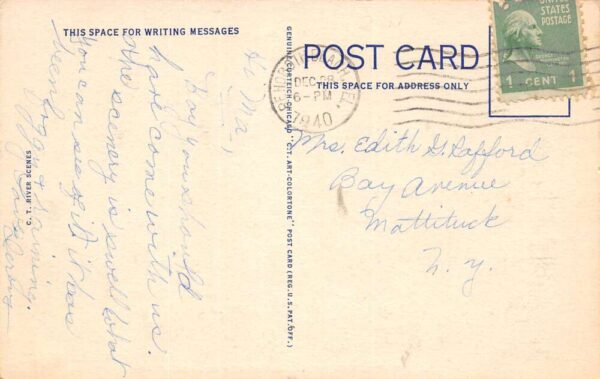 THIS SPACE FOR WRITING MESSAGES
Hi Ma,
Boy you should
have come with us.
the scenery is swell what
you can see of it it has
been foggy & raining.
Love
C. T. RIVER SCENES
GENUINE CURTEICH-CHICAGO "C.T. ART-COLORTONE" POST CARD (REG. U.S. PAT. OFF.)
POST CARD
THIS SPACE FOR ADDRESS ONLY
BEACH, FLA.
DEC 28
6-PM
1940
UNITED
STATES
POSTAGE
1 CENT 1
Mrs. Edith G. Pafford
Bay Avenue
Mattituck
N. Y.